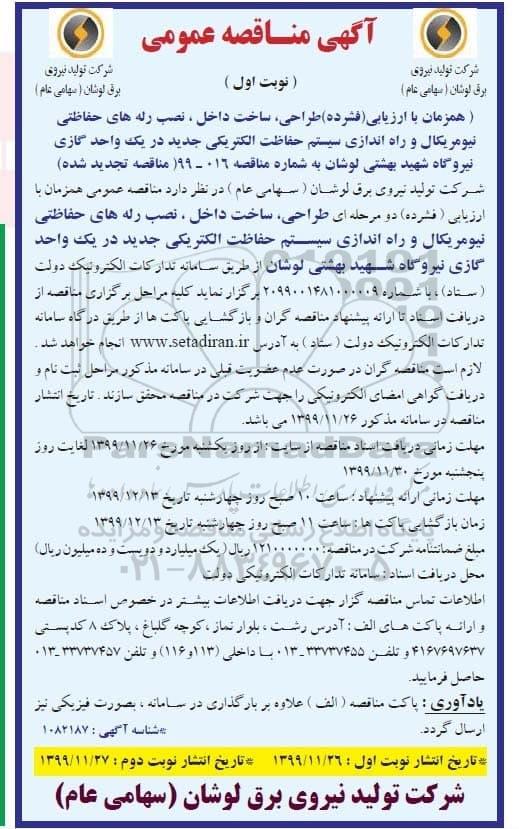 آگهی مناقصه عمومی
( نوبت اول )
شرکت تولید نیروی
برق لوشان ( سهامی عام )
شرکت تولید نیروی
برق لوشان ( سهامی عام )
( همزمان با ارزیابی(فشرده)طراحی، ساخت داخل ، نصب رله های حفاظتی
نیومریکال و راه اندازی سیستم حفاظت الکتریکی جدید در یک واحد گازی
نیروگاه شهید بهشتی لوشان به شماره مناقصه ۰۱۶ ـ ۹۹( مناقصه تجدید شده)
شرکت تولید نیروی برق لوشان ( سهامی عام ) در نظر دارد مناقصه عمومی همزمان با
ارزیابی ( فشرده) دو مرحله ای طراحی، ساخت داخل ، نصب رله های حفاظتی
نیومریکال و راه اندازی سیستم حفاظت الکتریکی جدید در یک واحد
گازی نیروگاه شهید بهشتی لوشان از طریق سامانه تدارکات الکترونیک دولت
( ستاد) ، با شماره ۲۰۹۹۰۰۱۴۸۱۰۰۰۰۰۹ برگزار نماید کلیه مراحل برگزاری مناقصه از
دریافت اسناد تا ارائه پیشنهاد مناقصه گران و بازگشایی پاکت ها از طریق درگاه سامانه
تدارکات الکترونیک دولت ( ستاد ) به آدرس www.setadiran.ir انجام خواهد شد .
لازم است مناقصه گران در صورت عدم عضویت قبلی در سامانه مذکور مراحل ثبت نام و
دریافت گواهی امضای الکترونیکی را جهت شرکت در مناقصه محقق سازند . تاریخ انتشار
مناقصه در سامانه مذکور ۱۳۹۹/۱۱/۲۶ می باشد.
مهلت زمانی دریافت اسناد مناقصه از سایت : از روز یکشنبه مورخ ۱۳۹۹/۱۱/۲۶ لغایت روز
پنجشنبه مورخ ۱۳۹۹/۱۱/۳۰
مهلت زمانی ارائه پیشنهاد : ساعت ۱۰ صبح روز چهارشنبه تاریخ ۱۳۹۹/۱۲/۱۳
زمان بازگشایی پاکت ها : ساعت ۱۱ صبح روز چهارشنبه تاریخ ۱۳۹۹/۱۲/۱۳
مبلغ ضمانتنامه شرکت در مناقصه : ۱۲۱۰۰۰۰۰۰۰ ریال ( یک میلیارد و دویست و ده میلیون ریال)
محل دریافت اسناد : سامانه تدارکات الکترونیکی دولت
اطلاعات تماس مناقصه گزار جهت دریافت اطلاعات بیشتر در خصوص اسناد مناقصه
و ارائه پاکت های الف : آدرس رشت ، بلوار نماز ، کوچه گلباغ ، پلاک ۸ کدپستی
۴۱۶۷۶۹۷۶۳۷ و تلفن ۳۳۷۳۷۴۵۵ ـ ۰۱۳ با داخلی (۱۱۳ و ۱۱۶) و تلفن ۳۳۷۳۷۴۵۷ ـ ۰۱۳
حاصل فرمایید.
یادآوری : پاکت مناقصه ( الف ) علاوه بر بارگذاری در سامانه ، بصورت فیزیکی نیز
ارسال گردد. *شناسه آگهی : ۱۰۸۲۱۸۷
*تاریخ انتشار نوبت اول : ۱۳۹۹/۱۱/۲۶ *تاریخ انتشار نوبت دوم : ۱۳۹۹/۱۱/۲۷
شرکت تولید نیروی برق لوشان (سهامی عام)
ParsNamadData
پایگاه اطلاع رسانی مناقصه و مزایده
۰۲۱-۸۸۳۴۹۶۷۰-۵